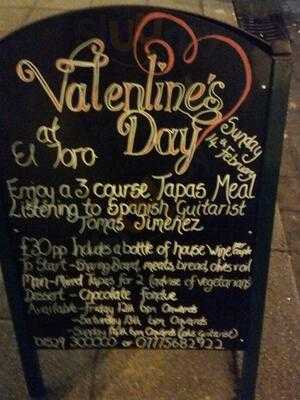 Valentine's
Day
at
El Toro
Sunday
14th
February
Enjoy a 3 course Tapas Meal
Listening to Spanish Guitarist
Tomas Jimenez
£30pp Includes a bottle of house wine
To Start - Sharing Board, meats, bread, olives, oil
Main - Mixed Tapas for 2 (advise of vegetarians
Dessert - Chocolate fondue
Available - Friday 12th 6pm Onwards
Saturday 13th 6pm Onwards
Sunday 14th 6pm Onwards (plus guitarist)
01529 300000 or 07775682922